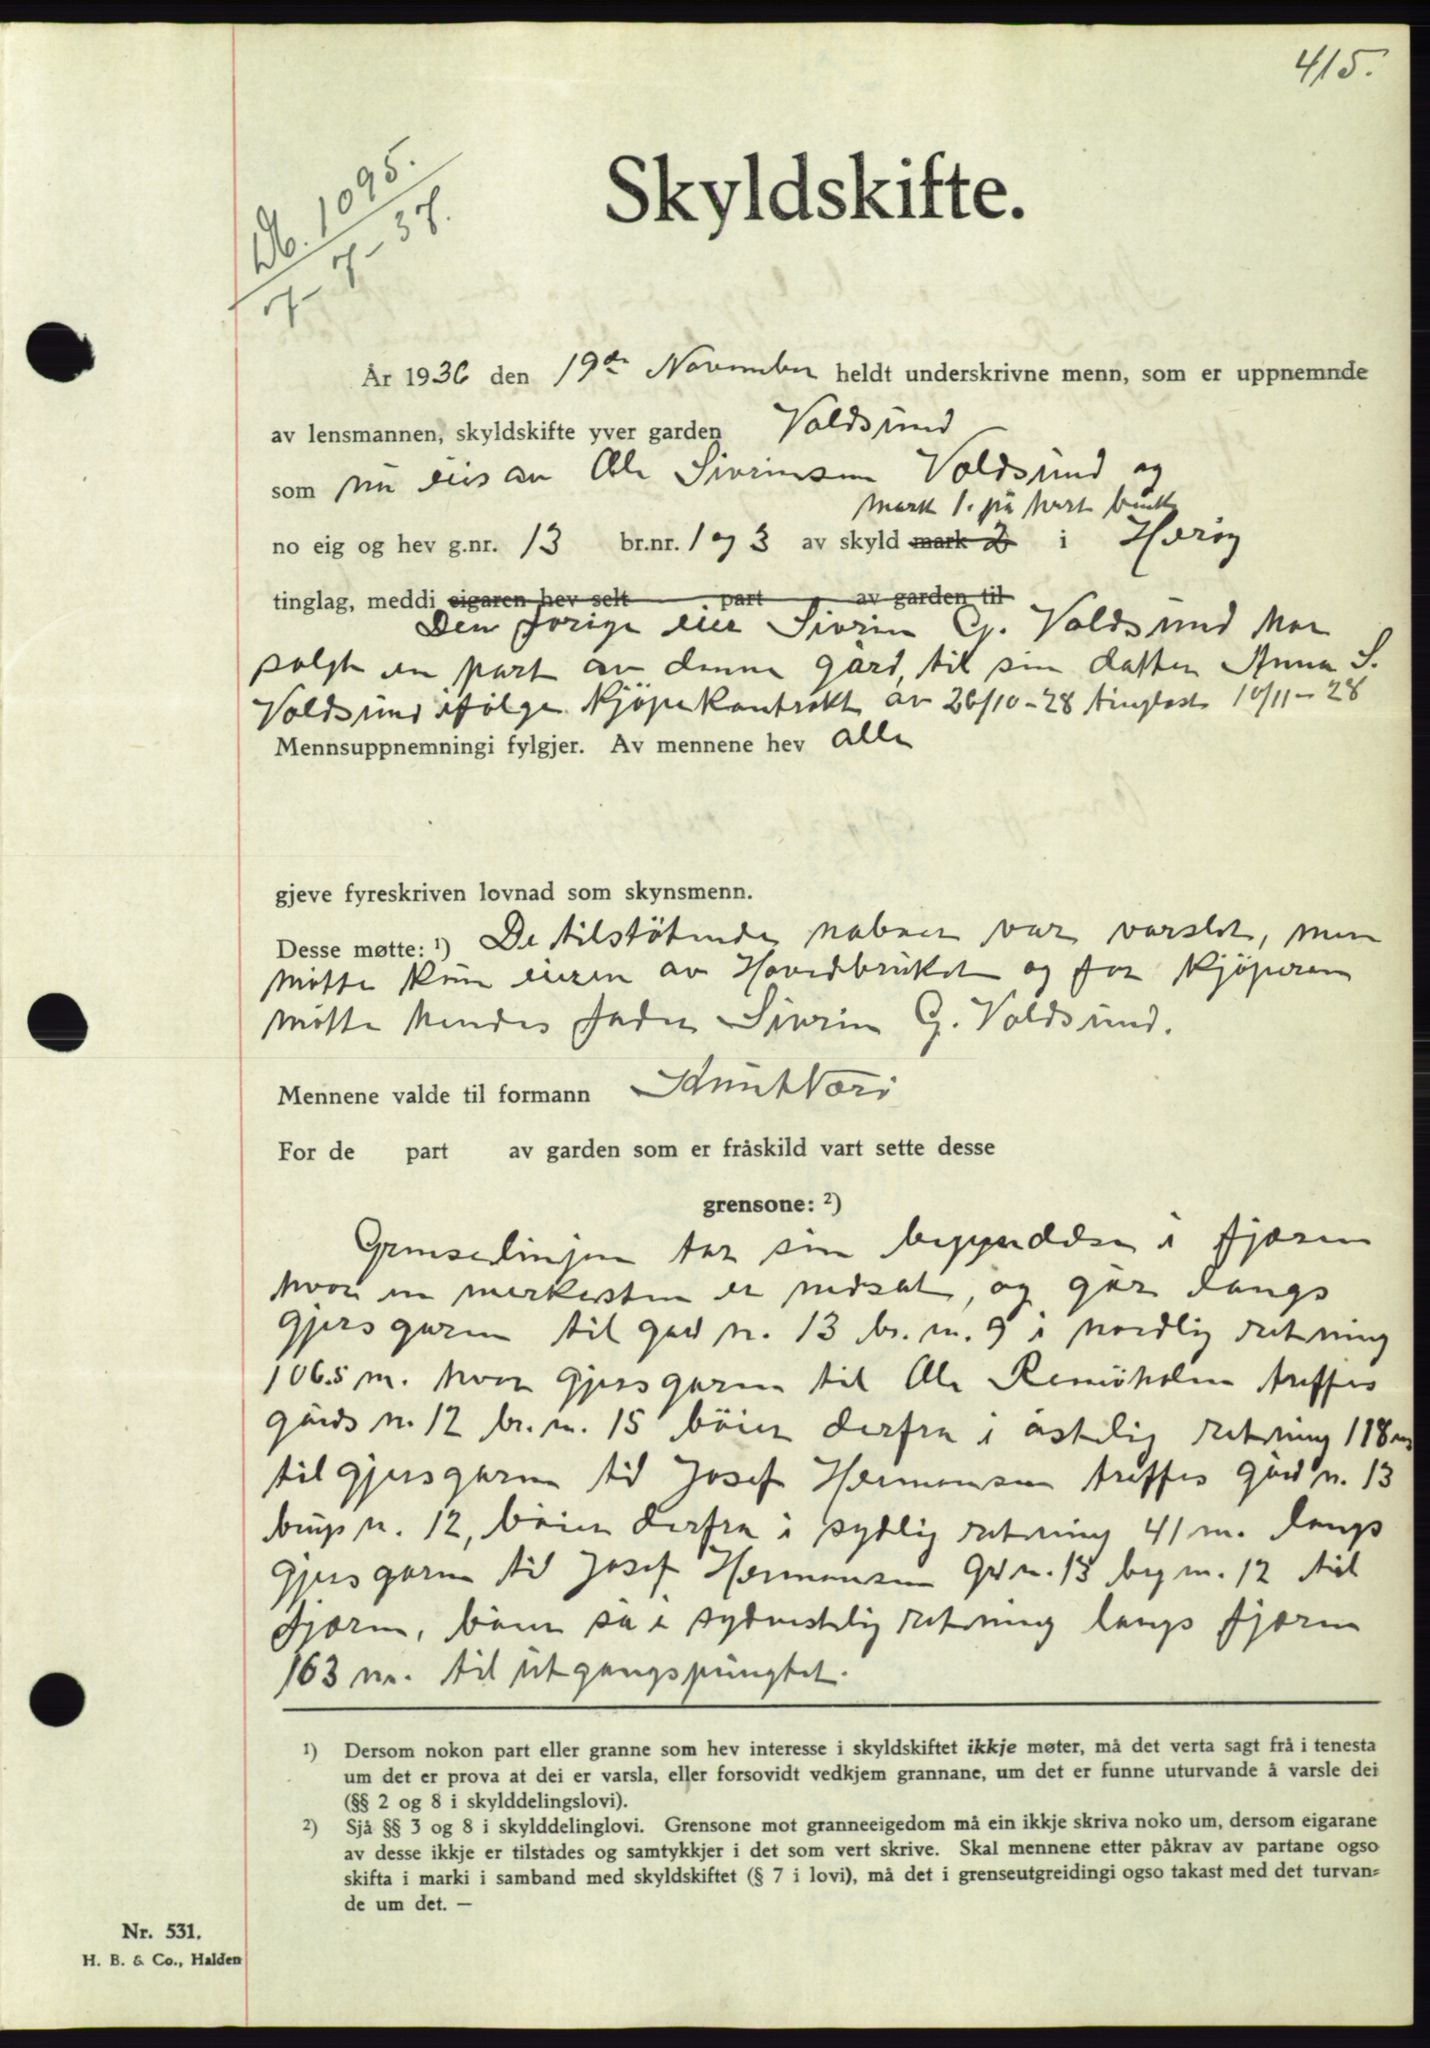 415.
Db. 1095.
7-7-37.
Skyldskifte.
År 1936 den 19de November heldt underskrivne menn, som er uppnemnde
av lensmannen, skyldskifte yver garden Voldsund
som nu eies av Ole Sivrinsen Voldsund og
mark 1. på hvert bruk
no eig og hev g.nr. 13 br.nr. 1 og 3 av skyld mark 2 i Herøy
tinglag, meddi eigaren hev selt part av garden til
Den forige eier Sivrin G. Voldsund har
solgt en part av denne gård, til sin datter Anna S.
Voldsund ifølge kjöpekontrakt av 26/10-28 tinglest 10/11-28
Mennsuppnemningi fylgjer. Av mennene hev alle
gjeve fyreskriven lovnad som skynsmenn.
Desse møtte: 1) De tilstötende naboer var varslet, men
mötte kun eieren av Hovedbruket og for kjöperen
mötte hendes fader Sivrin G. Voldsund.
Mennene valde til formann Knut Nærö
For de part av garden som er fråskild vart sette desse
grensone: 2)
Grenselinjen tar sin begyndelse i fjæren
hvor en merkesten er nedsat, og går langs
gjersgaren til gård n. 13 br. n. 9 i nordlig retning
106.5 m. hvor gjersgaren til Ole Remöholm treffes
gårds n. 12 br. n. 15 böier derfra i östelig retning 118 m
til gjersgaren til Josef Hermansen treffes gård n. 13
brugs n. 12, böier derfra i sydlig retning 41 m. langs
gjersgaren til Josef Hermansen gd n. 13 brg n. 12 til
fjæren, böier så i sydvestelig retning langs fjæren
163 m. til utgangspungtet.
1) Dersom nokon part eller granne som hev interesse i skyldskiftet ikkje møter, må det verta sagt frå i tenesta
um det er prova at dei er varsla, eller forsovidt vedkjem grannane, um det er funne uturvande å varsle dei
(§§ 2 og 8 i skylddelingslovi).
2) Sjå §§ 3 og 8 i skylddelinglovi. Grensone mot granneeigedom må ein ikkje skriva noko um, dersom eigarane
av desse ikkje er tilstades og samtykkjer i det som vert skrive. Skal mennene etter påkrav av partane ogso
skifta i marki i samband med skyldskiftet (§ 7 i lovi), må det i grenseutgreidingi ogso takast med det turvan=
de um det. —
Nr. 531.
H. B. & Co., Halden